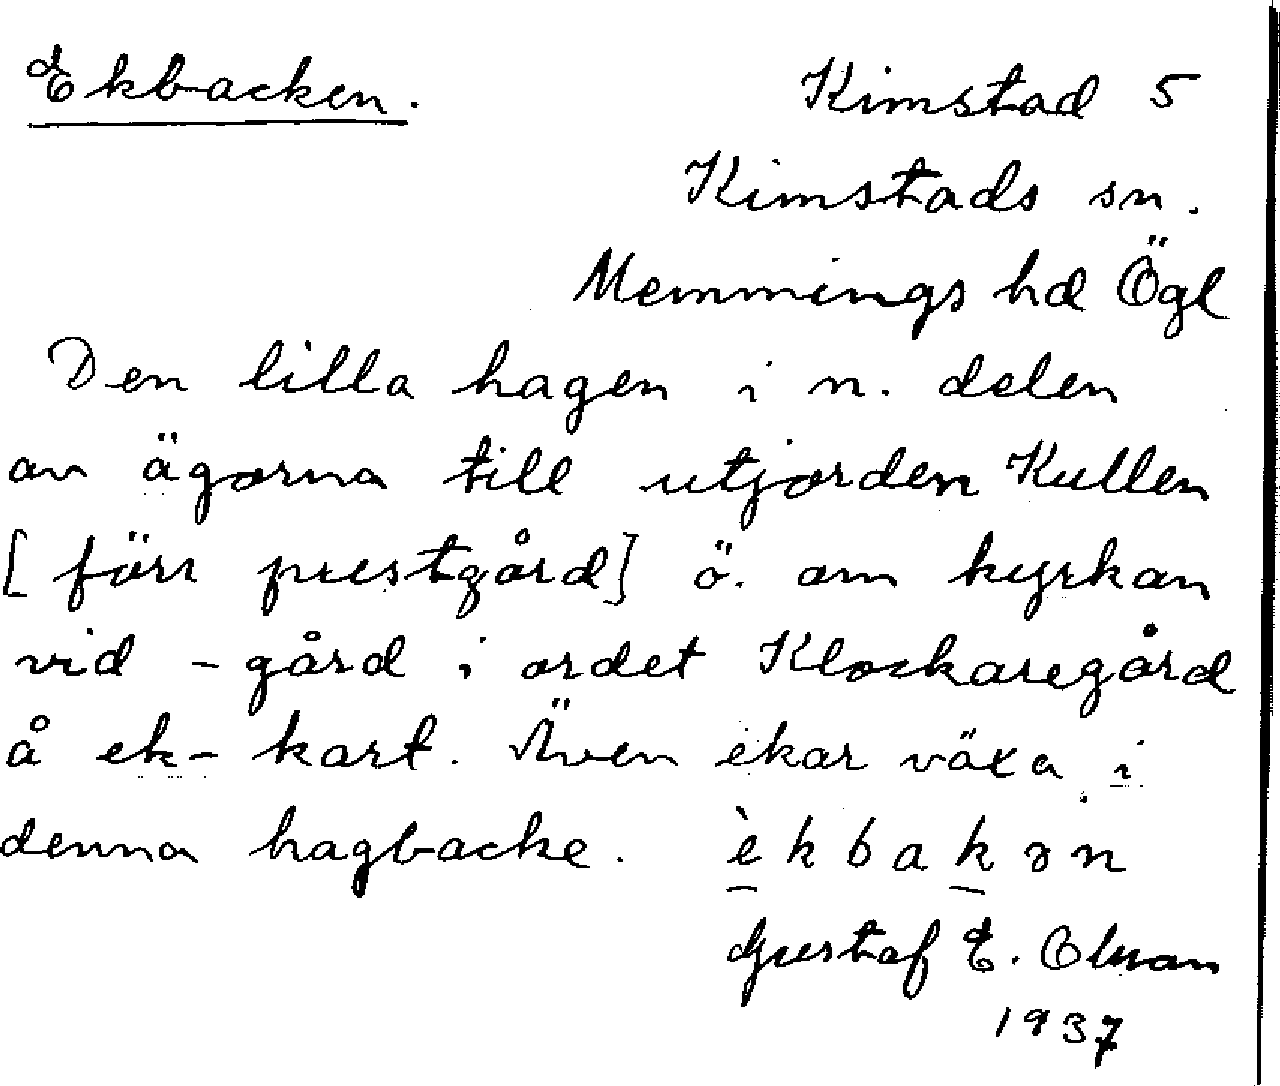 Ekbacken.
Kimstad 5
Kimstads sn.
Memmings hd Ögl
Den lilla hagen i n. delen
av ägorna till utjorden Kullen
[förr prestgård] ö. om kyrkan
vid -gård i ordet Klockaregård
å ek-kart. Även ekar växa i
denna hagbacke. èkbakən
Gustaf E. Olsson
1937